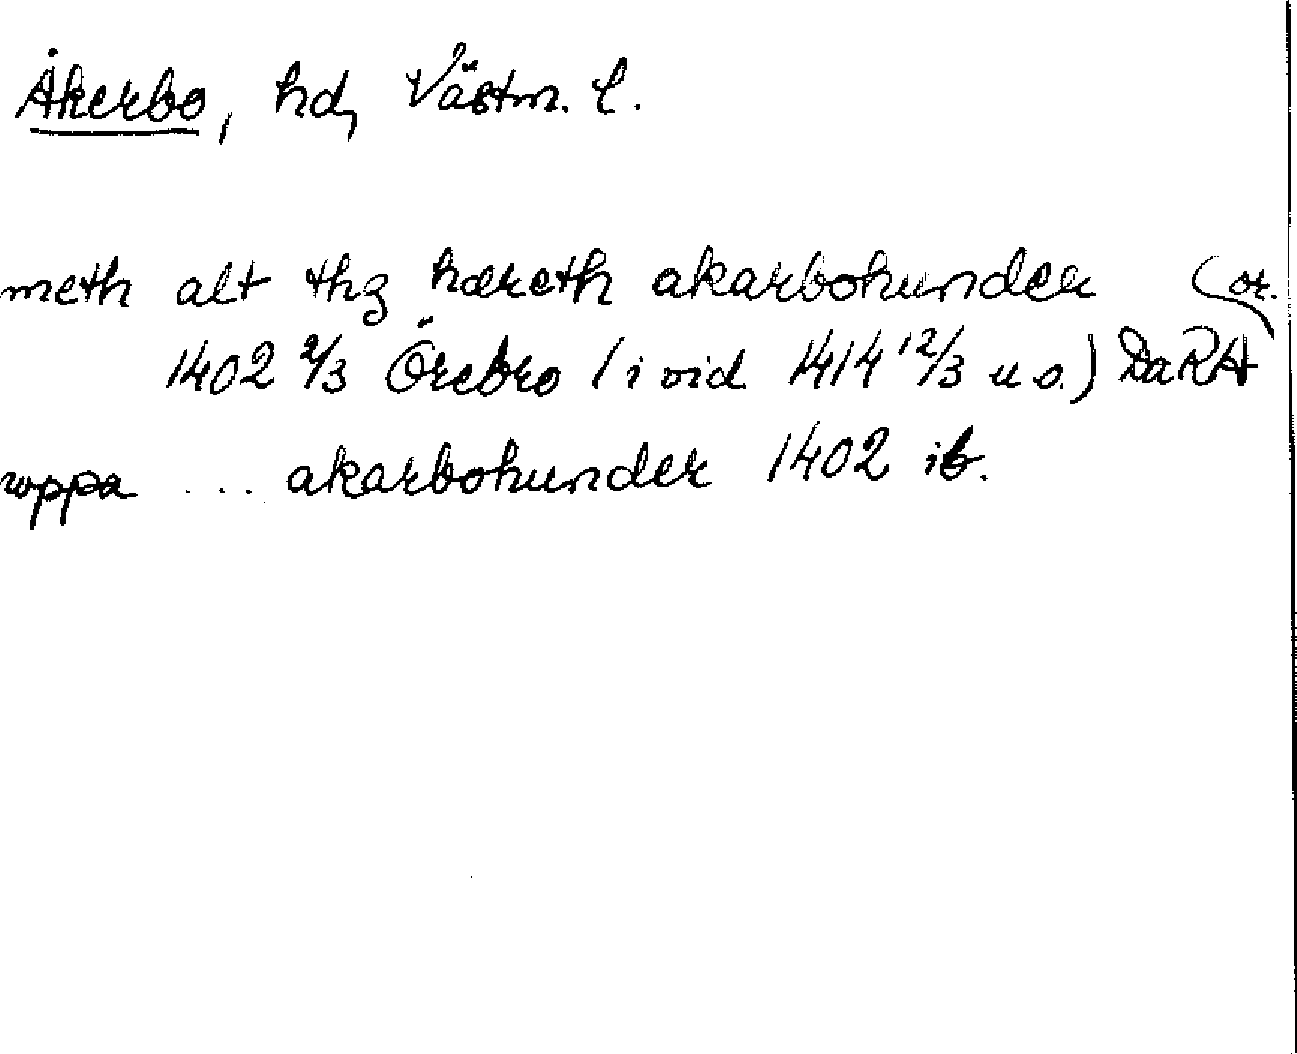 Åkerbo, hd, Västm. l.
meth alt thz hæreth akarbohunder (or.
1402 2/3 Örebro (i vid 1414 12/3 u.o.) DaRA
uppa ... akarbohunder 1402 ib.